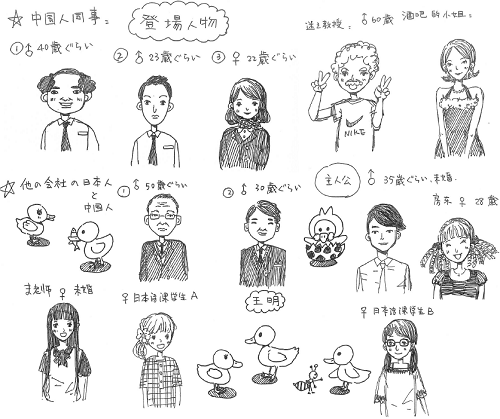 登場人物
☆ 中国人同事:
① ♂ 40歳ぐらい
② ♂ 23歳ぐらい
③ ♀ 22歳ぐらい
教授: ♂ 60歳
酒吧的小姐:
NIKE
☆ 他の会社の日本人
と
中国人
① ♂ 50歳ぐらい
② ♂ 30歳ぐらい
主人公 ♂ 35歳ぐらい、未婚
房东 ♀ 28歳
老师 ♀ 未婚
♀ 日本語課学生A
王明
♀ 日本語課学生B